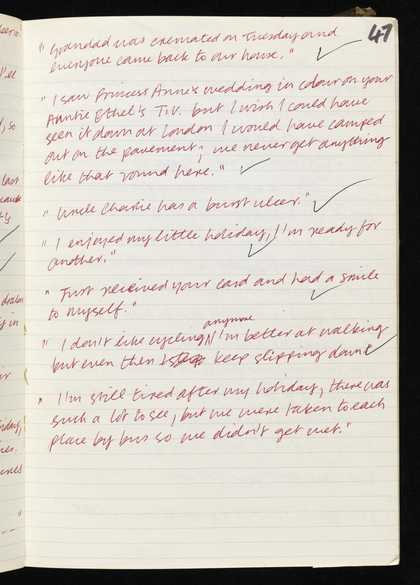 47
"Grandad was cremated on Tuesday and
everyone came back to our house."
"I saw Princess Anne's wedding in colour on your
Auntie Ethel's T.V. but I wish I could have
seen it down at London I would have camped
out on the pavement, we never get anything
like that round here."
"Uncle Charlie has a burst ulcer."
"I enjoyed my little holiday, I'm ready for
another."
"Just received your card and had a smile
to myself."
anymore
"I don't like cycling, I'm better at walking
but even then I keep slipping down"
"I'm still tired after my holiday, there was
such a lot to see, but we were taken to each
place by bus so we didn't get wet."